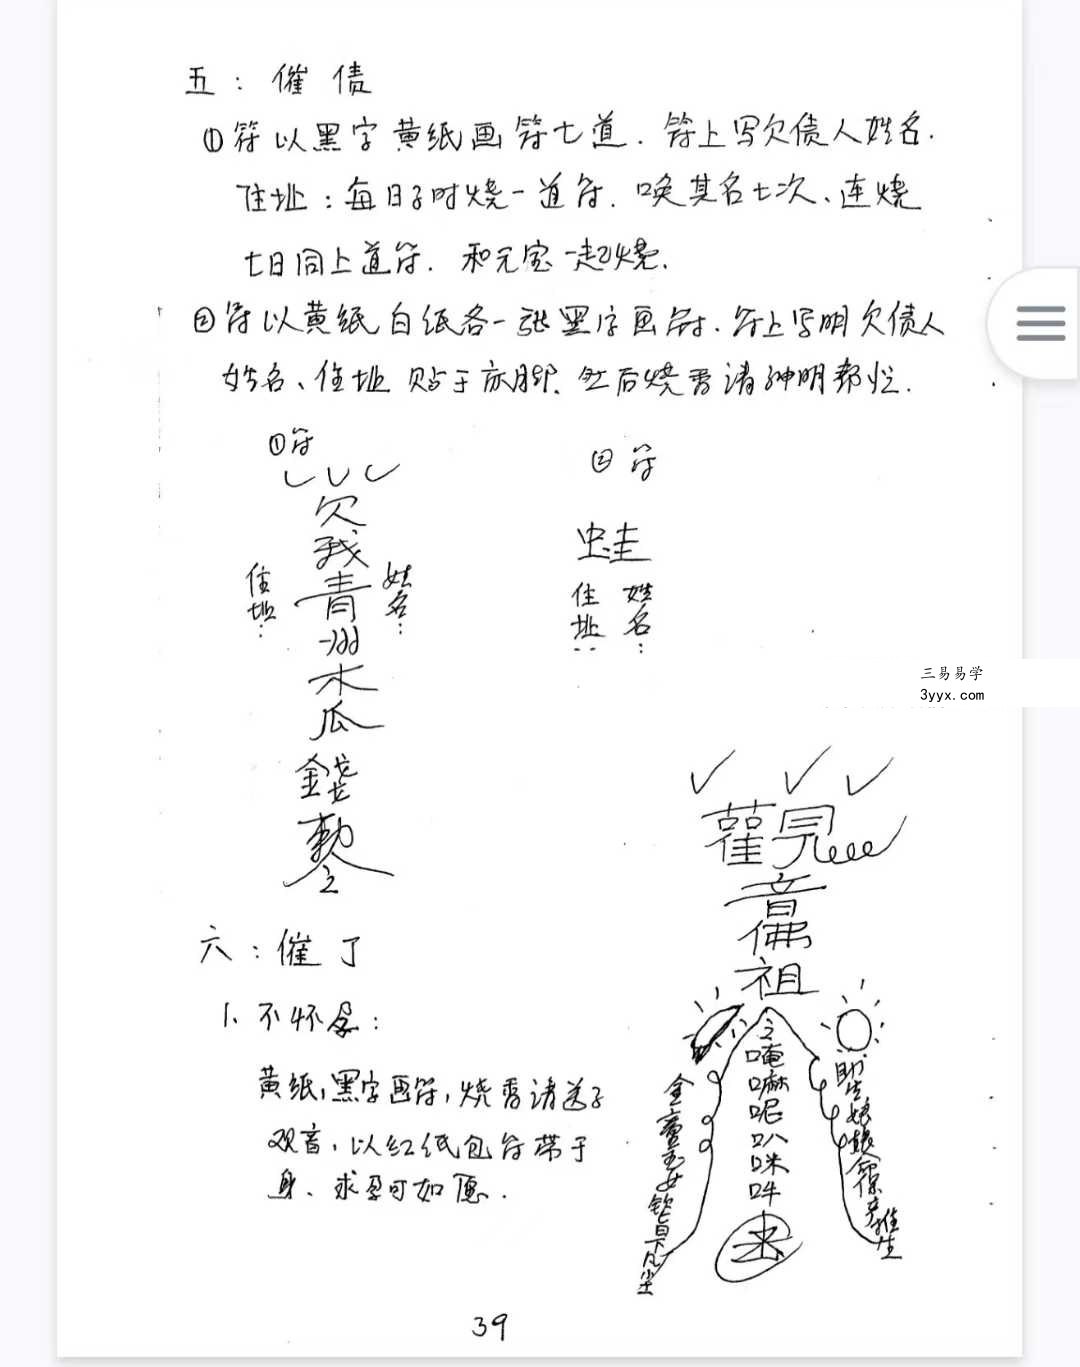 五：催债
①符以黑字黄纸画符七道．符上写欠债人姓名．
住址：每日子时烧一道符．唤其名七次、连烧
七日同上道符．和元宝一起烧．
②符以黄纸白纸各一张黑字画符．符上写明欠债人
姓名、住址 贴于床脚．然后烧香请神明帮忙．
①符
欠
我
青
州
木
瓜
錢
勅
令
住址：
姓名：
②符
蛙
住址：
姓名：
三易易学
3yyx.com
觀
音
佛
祖
唵
嘛
呢
叭
咪
吽
金童玉女钦旨下凡尘
助生娘娘命保产推生
六：催丁
1、不怀孕：
黄纸，黑字画符，烧香请送子
观音，以红纸包符带于
身、求孕可如愿．
39